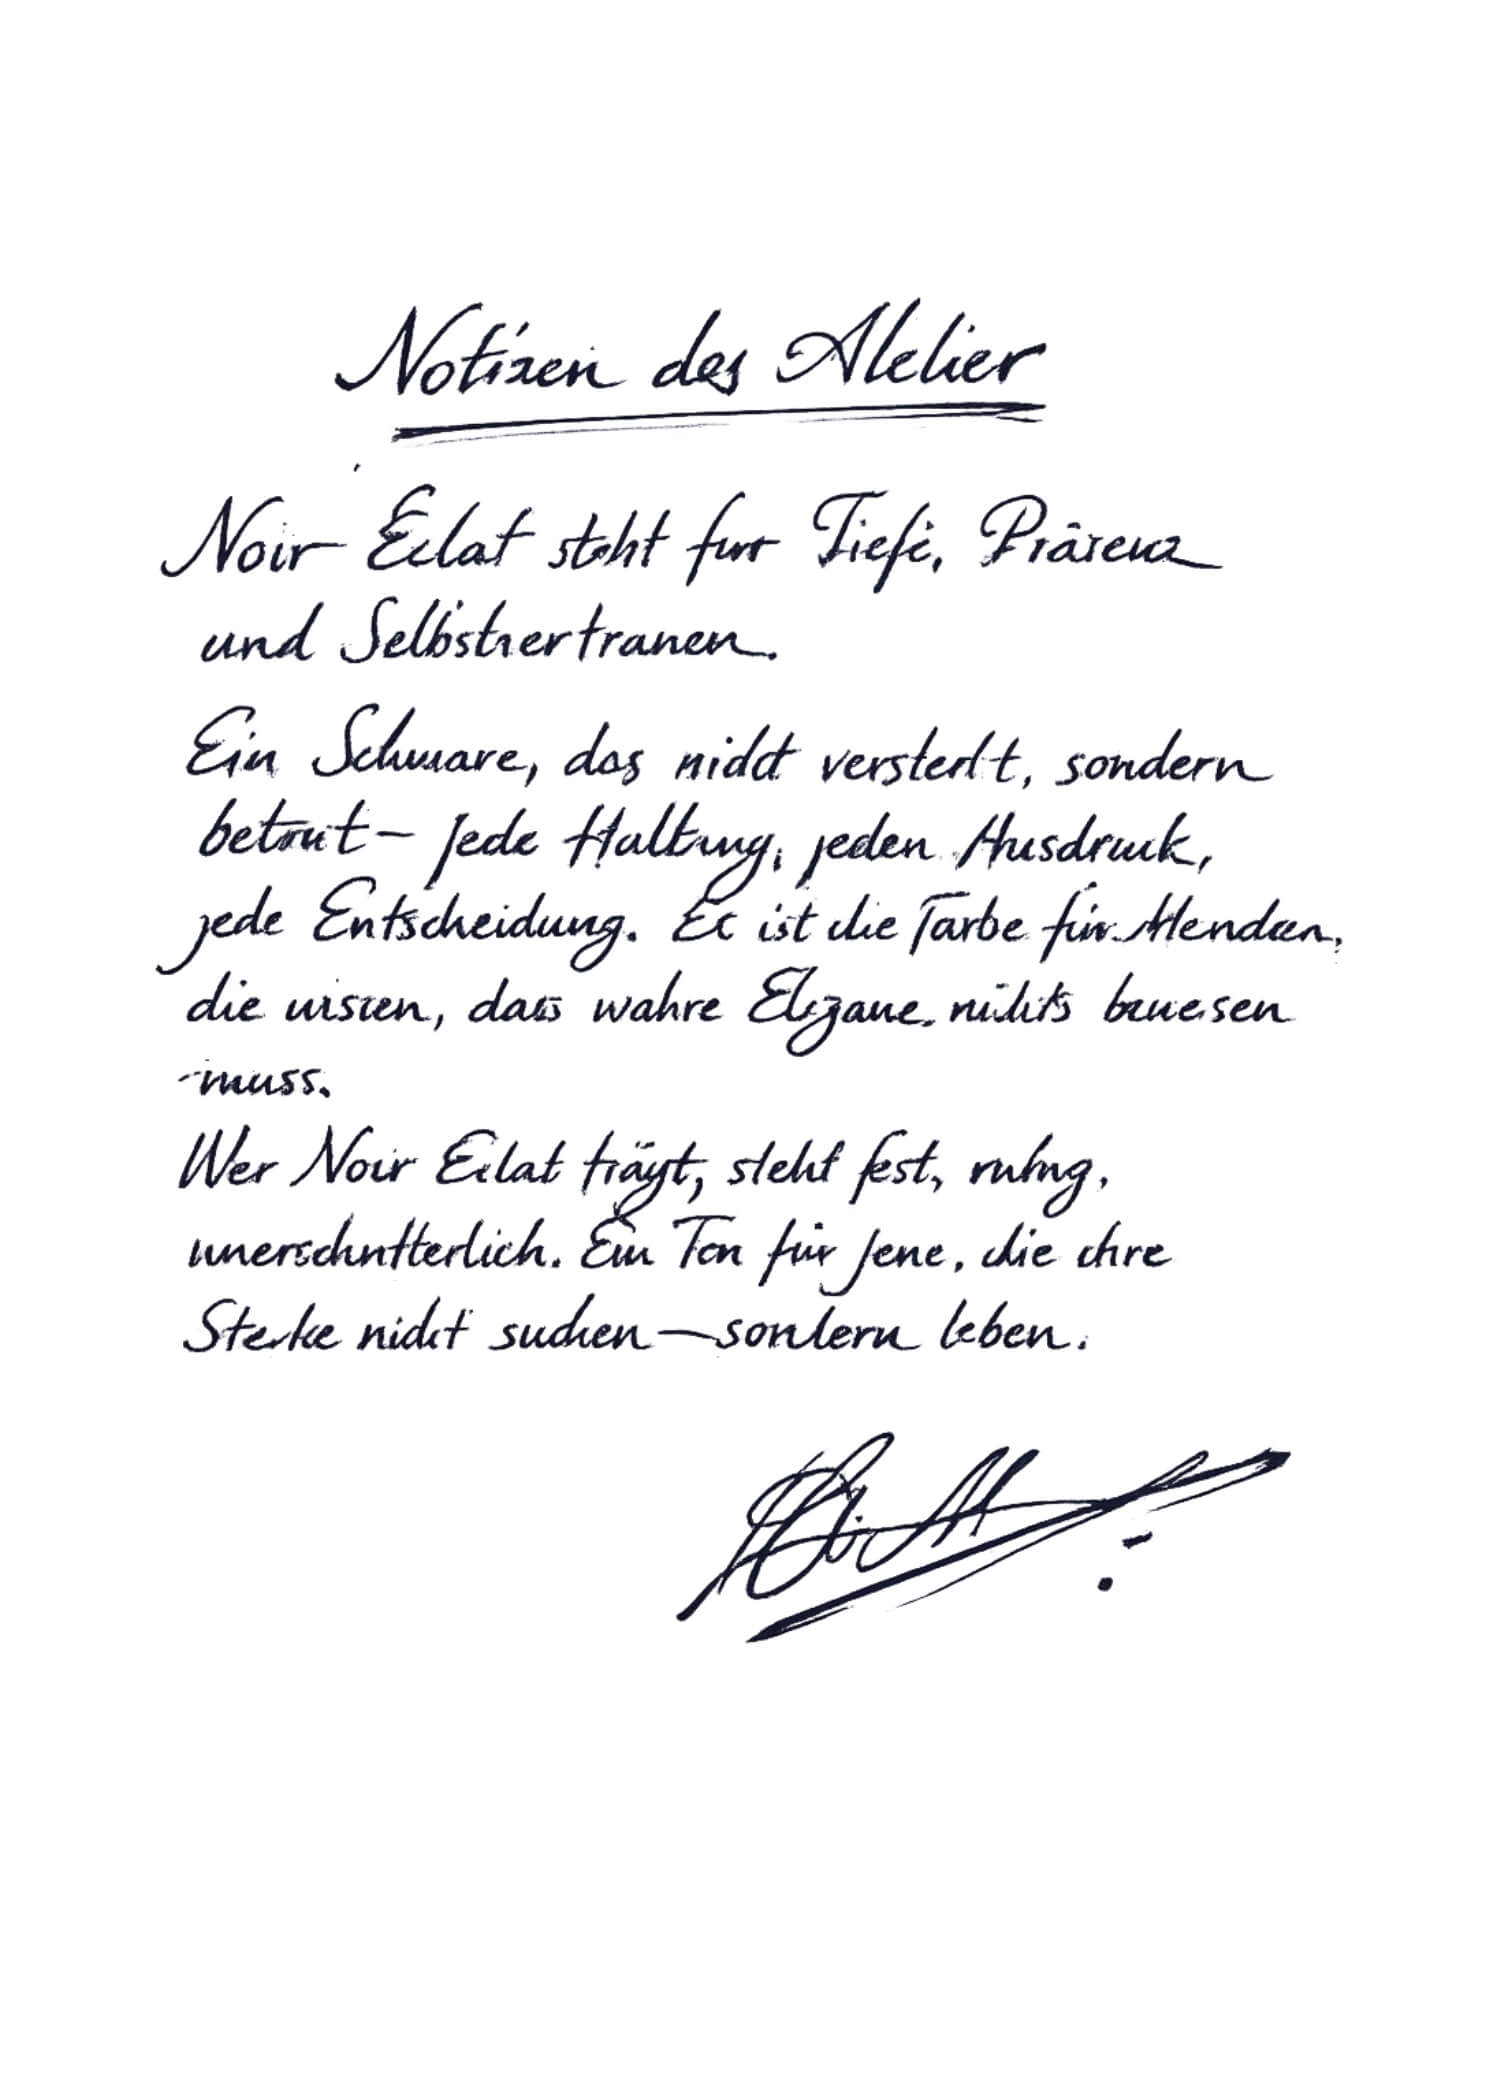 Notizen des Atelier
Noir Éclat steht für Tiefe, Präsenz
und Selbstvertrauen.
Ein Schwarz, das nicht versteckt, sondern
betont – jede Haltung, jeden Ausdruck,
jede Entscheidung. Es ist die Farbe für Menschen,
die wissen, dass wahre Eleganz nichts beweisen
muss.
Wer Noir Éclat trägt, steht fest, ruhig,
unerschütterlich. Ein Ton für jene, die ihre
Stärke nicht suchen – sondern leben.